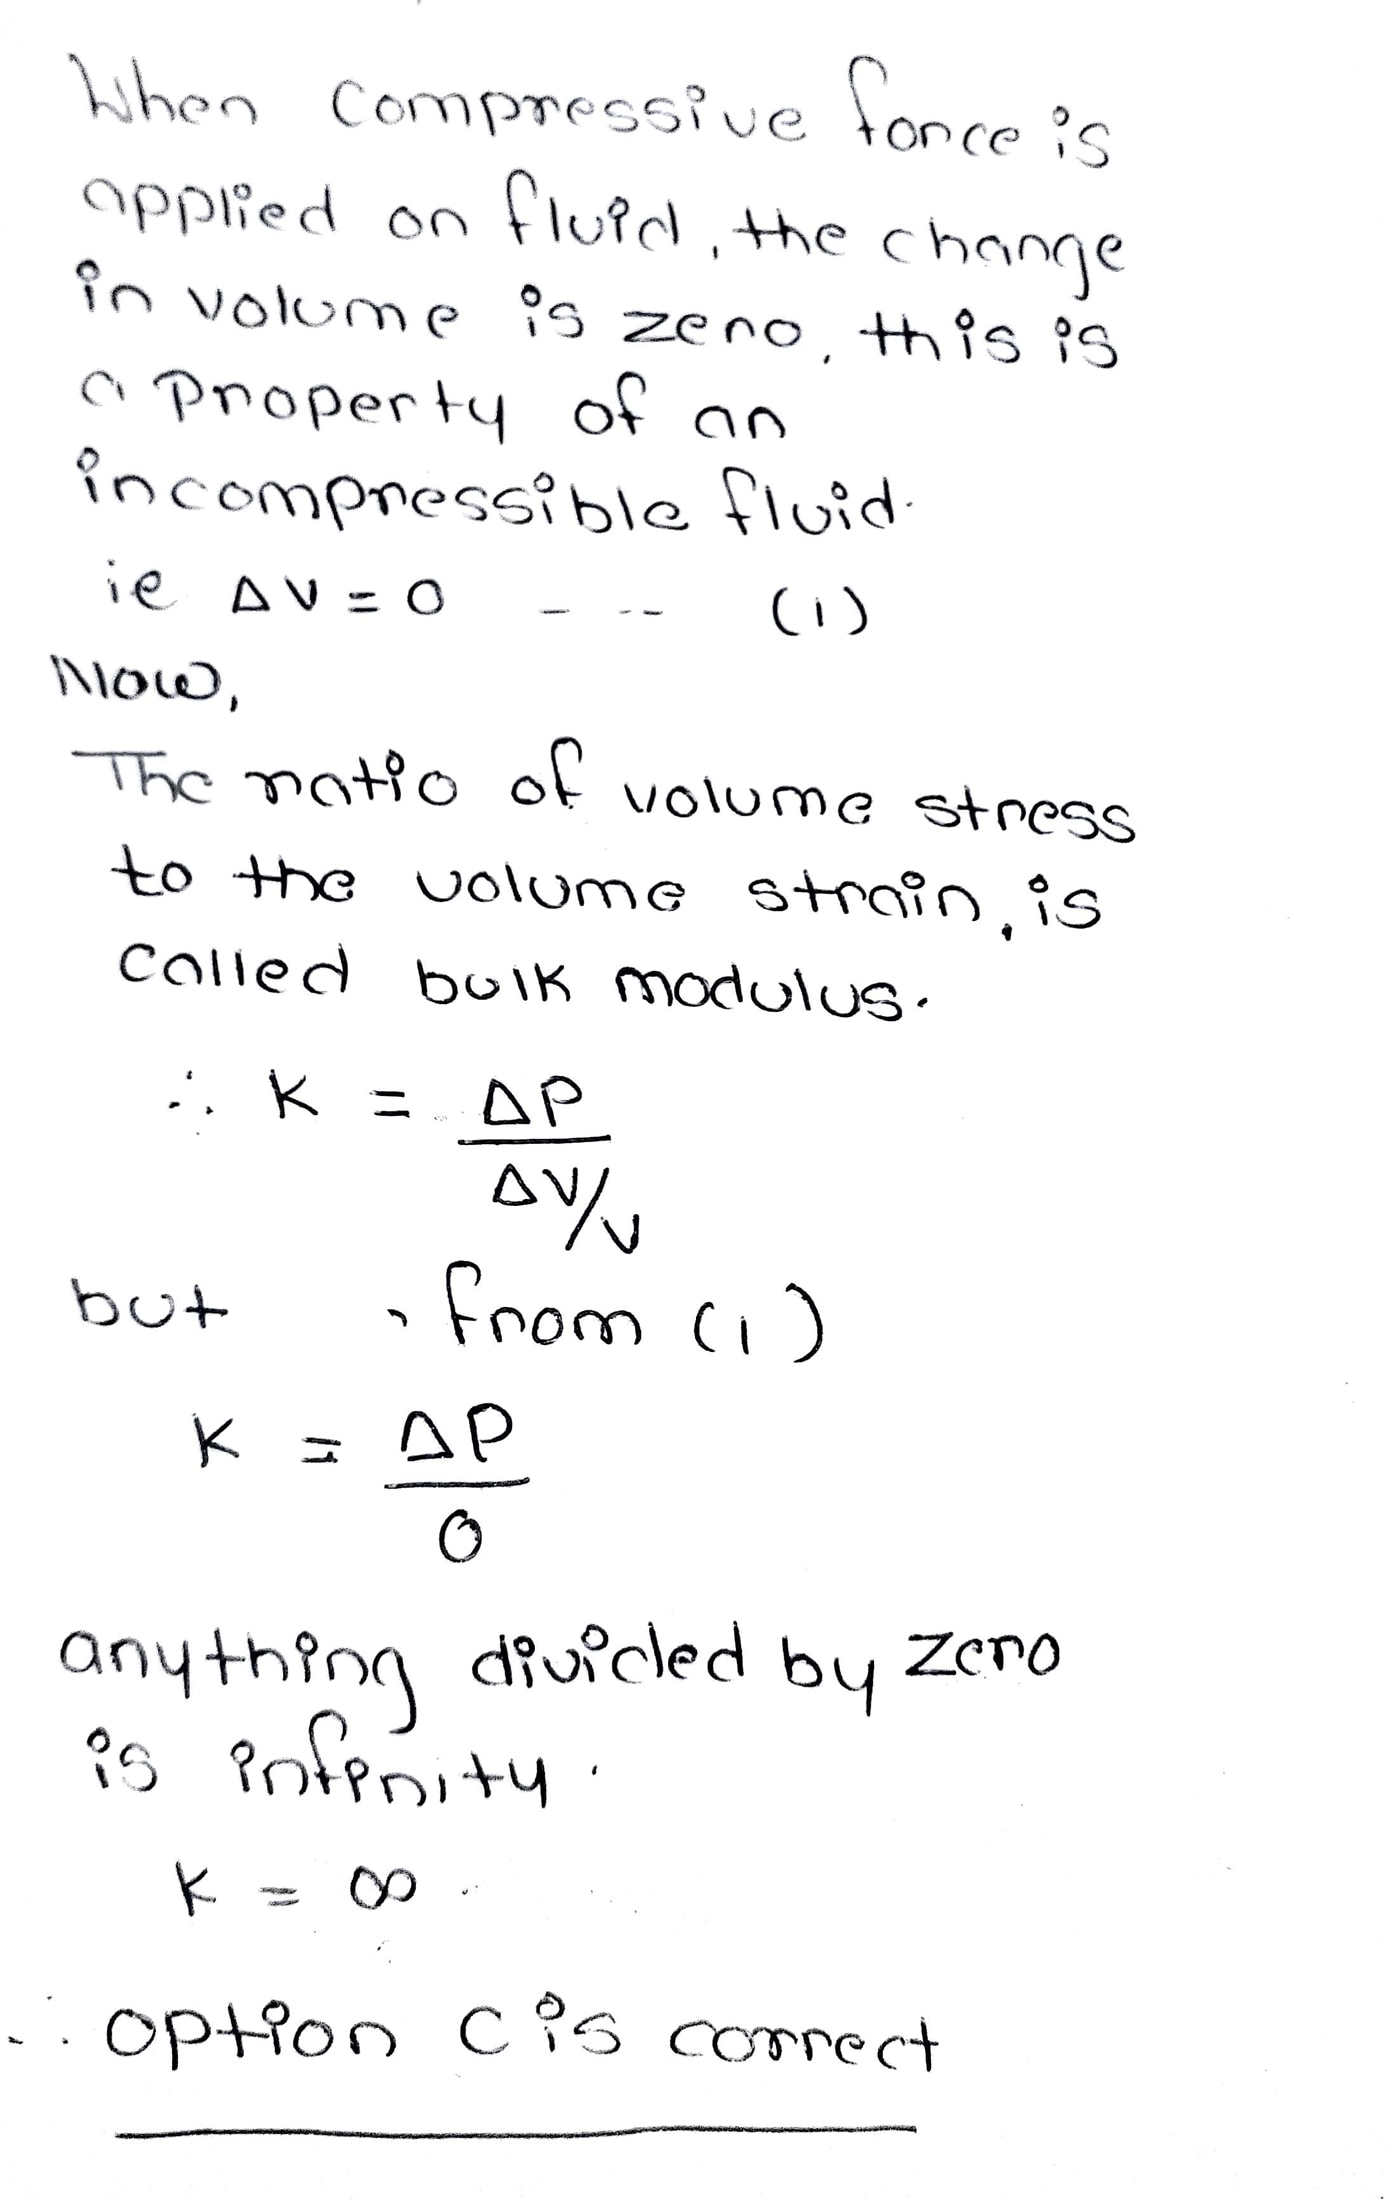 When compressive force is
applied on fluid, the change
in volume is zero, this is
a property of an
incompressible fluid.
ie ΔV = 0 - -- (1)
Now,
The ratio of volume stress
to the volume strain, is
called bulk modulus.
∴ K = ΔP
ΔV/V
but , from (1)
K = ΔP
0
anything divided by zero
is infinity.
K = ∞
∴ option C is correct